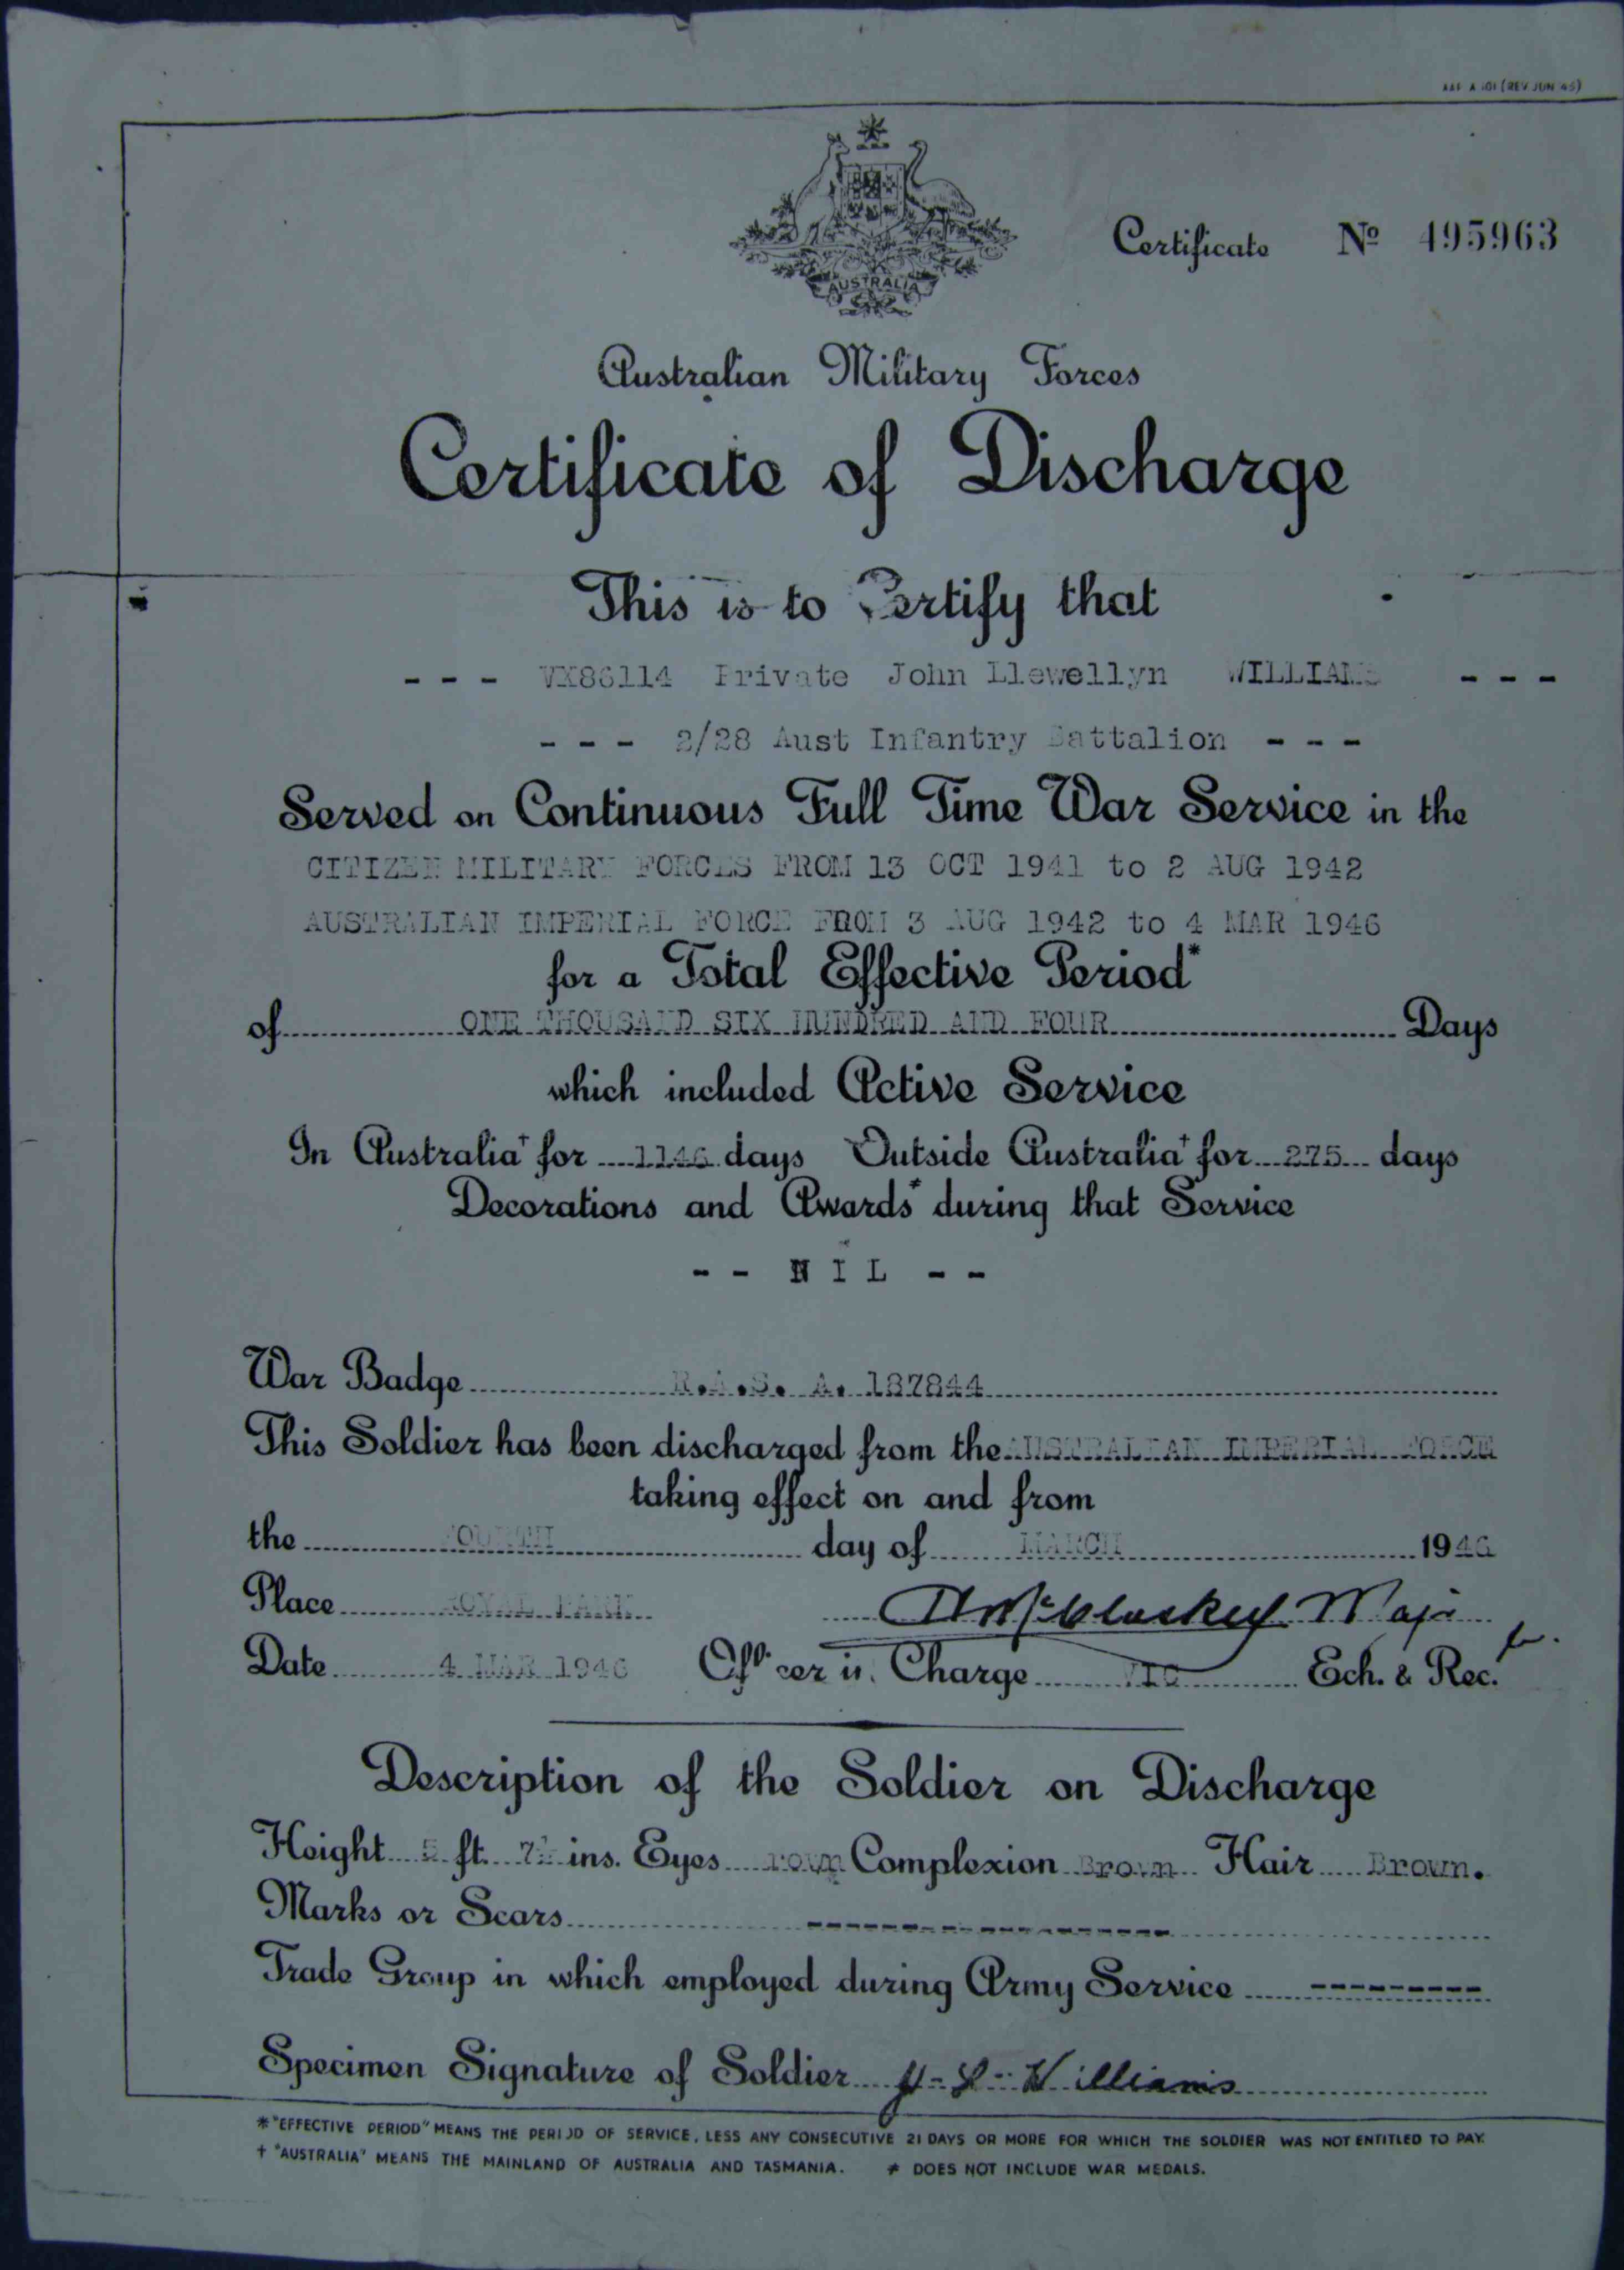 AAF A 101 (REV JUN 45)
AUSTRALIA
Certificate Nº 495963
Australian Military Forces
Certificate of Discharge
This is to Certify that
- - - VX86114 Private John Llewellyn WILLIAMS - - -
- - - 2/28 Aust Infantry Battalion - - -
Served on Continuous Full Time War Service in the
CITIZEN MILITARY FORCES FROM 13 OCT 1941 to 2 AUG 1942
AUSTRALIAN IMPERIAL FORCE FROM 3 AUG 1942 to 4 MAR 1946
for a Total Effective Period*
of ONE THOUSAND SIX HUNDRED AND FOUR Days
which included Active Service
In Australia† for 1146 days Outside Australia† for 275 days
Decorations and Awards≠ during that Service
- - NIL - -
War Badge R.A.S. A. 187844
This Soldier has been discharged from the AUSTRALIAN IMPERIAL FORCE
taking effect on and from
the FOURTH day of MARCH 1946
Place ROYAL PARK
Maj
Date 4 MAR 1946 Officer in Charge VIC Ech. & Rec.
Description of the Soldier on Discharge
Height 5 ft. 7½ ins. Eyes rown Complexion Brown Hair Brown.
Marks or Scars ------------
Trade Group in which employed during Army Service ---------
Specimen Signature of Soldier J. L. Williams
* "EFFECTIVE PERIOD" MEANS THE PERIOD OF SERVICE, LESS ANY CONSECUTIVE 21 DAYS OR MORE FOR WHICH THE SOLDIER WAS NOT ENTITLED TO PAY.
† "AUSTRALIA" MEANS THE MAINLAND OF AUSTRALIA AND TASMANIA. ≠ DOES NOT INCLUDE WAR MEDALS.